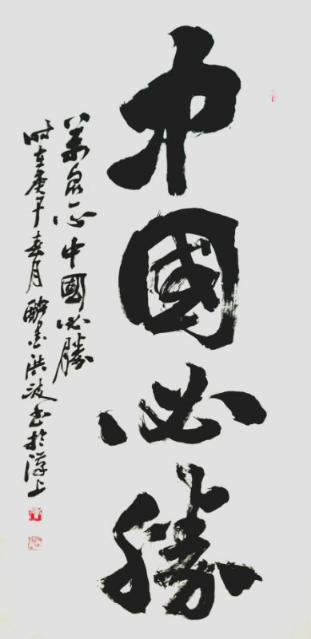 中國必勝
萬眾一心中國必勝
时在庚子春月墨洪波书於上